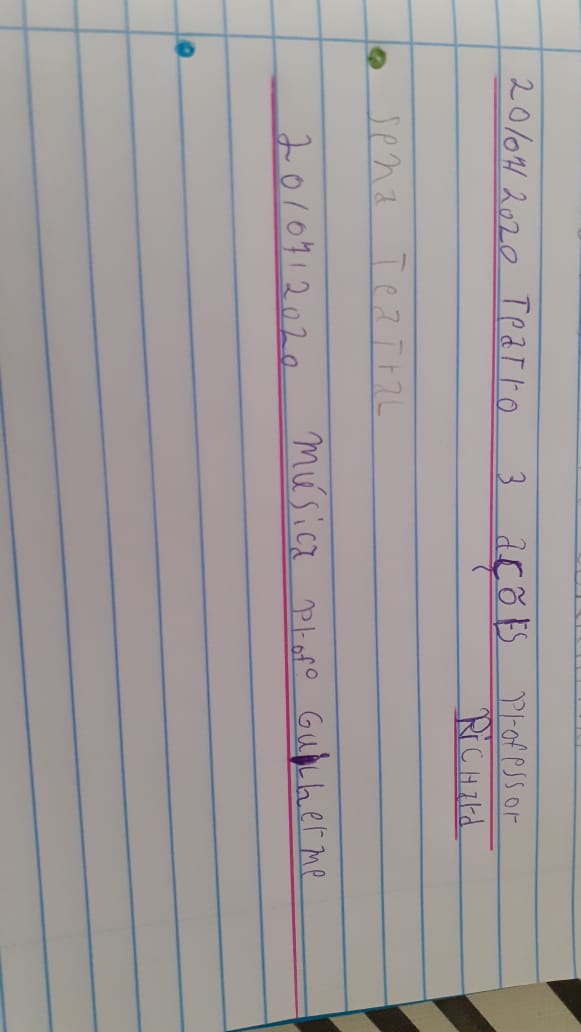 20/04/2020 Teatro 3 ações professor
Richard
Sena Teatral
20/04/2020 música profº Guilherme